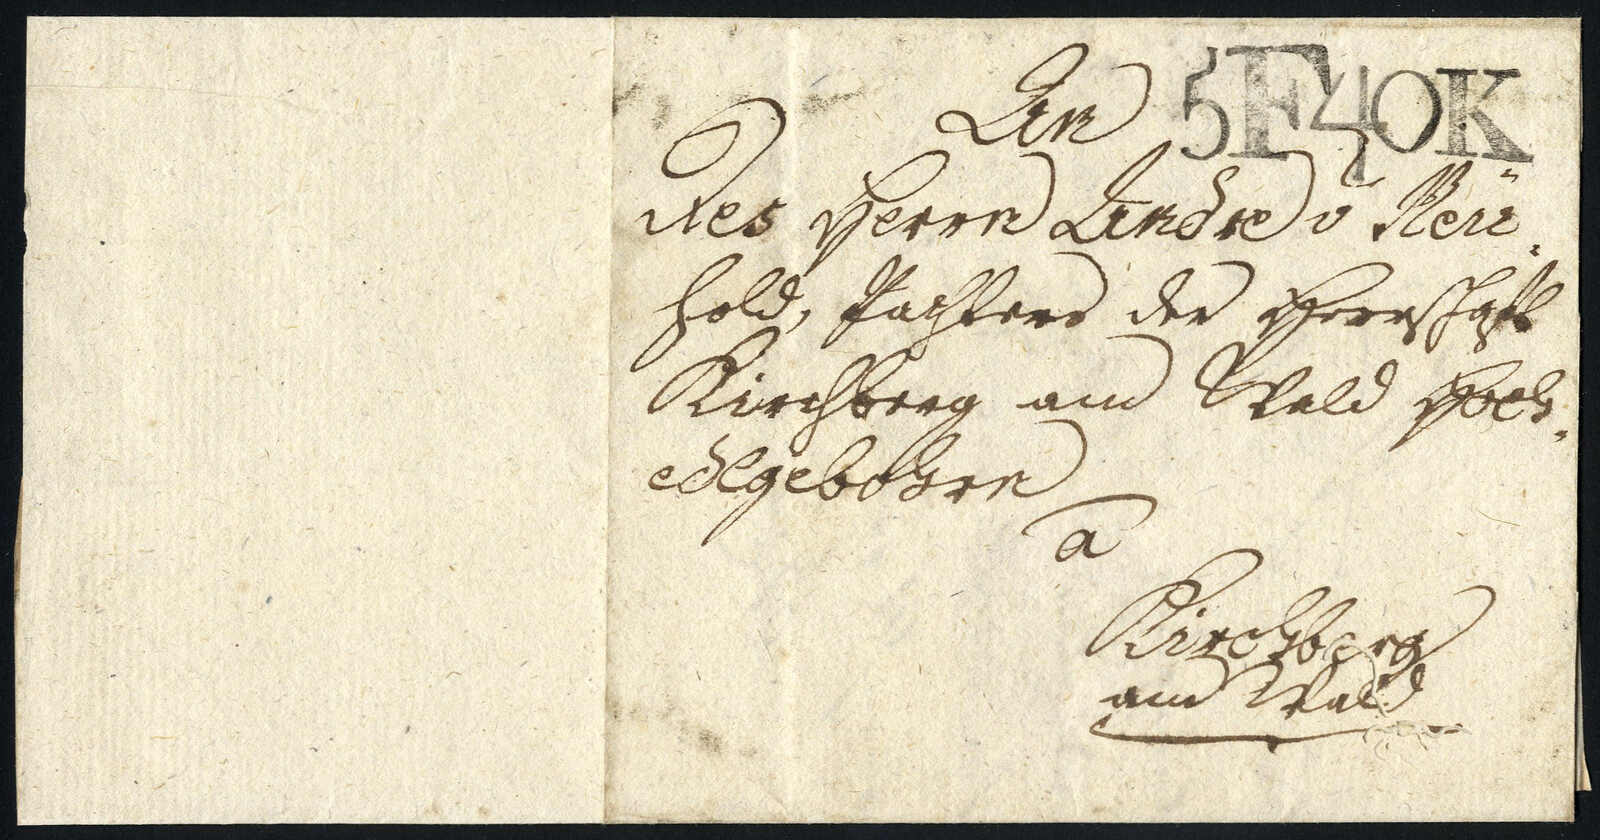 An
5F40K
Des Herrn Andre v Rein-
hold, Pachters der Herrschaft
Kirchberg am Wald Hoch-
edlgebohrn
a
Kirchberg
am Wald